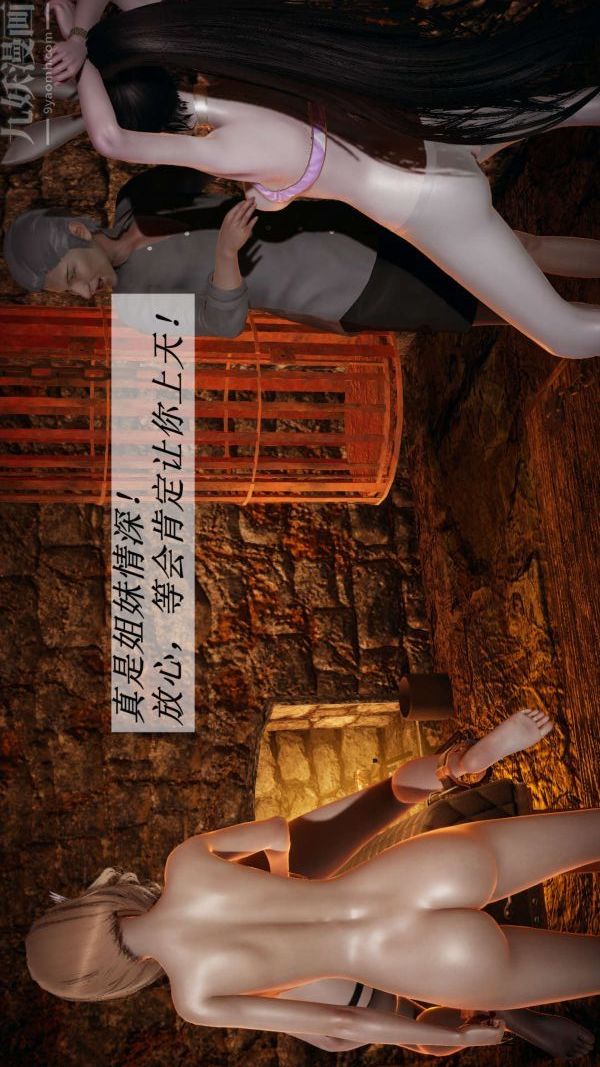 九妖漫画
9yaomh.com
真是姐妹情深！
放心，等会肯定让你上天！